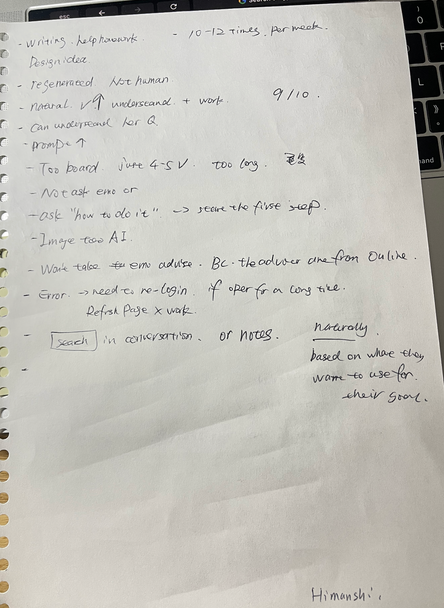 esc
- writing. help homework. - 10-12 times per week.
Design idea
- regenerated Not human
- natural. V↑ understand + work. 9/10.
- Can understand her Q
- prompt ↑
- Too board. just 4-5 V. too long.
- Not ask emo or
- ask "how to do it" -> the first step.
- Image AI.
- emo advise. BC. the come from Online.
- Error -> need to re-login if open for a long time.
Page x work.
- in conversation. or notes. naturally.
based on they
want to use for
their goal.
Himanshi.